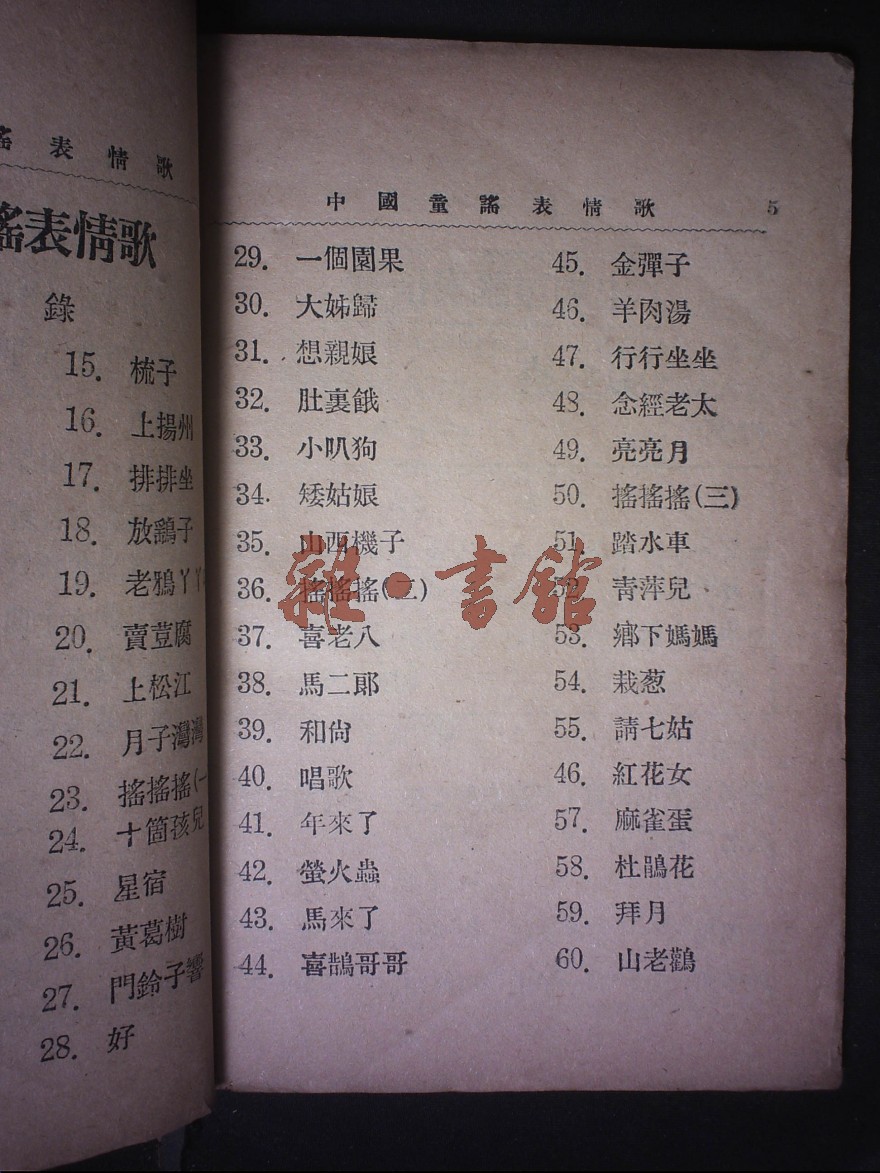 謠表情歌
謠表情歌
錄
15. 梳子
16. 上揚州
17. 排排坐
18. 放鷂子
19. 老鴉丫丫
20. 賣荳腐
21. 上松江
22. 月子灣灣
23. 搖搖搖(一
24. 十箇孩兒
25. 星宿
26. 黃葛樹
27. 門鈴子響
28. 好
中國童謠表情歌 5
29. 一個園果
30. 大姊歸
31. 想親娘
32. 肚裏餓
33. 小叭狗
34. 矮姑娘
35. 山西機子
36. 搖搖搖(二)
37. 喜老八
38. 馬二郎
39. 和尙
40. 唱歌
41. 年來了
42. 螢火蟲
43. 馬來了
44. 喜鵲哥哥
45. 金彈子
46. 羊肉湯
47. 行行坐坐
48. 念經老太
49. 亮亮月
50. 搖搖搖(三)
51. 踏水車
52. 青萍兒
53. 鄉下媽媽
54. 栽葱
55. 請七姑
46. 紅花女
57. 麻雀蛋
58. 杜鵑花
59. 拜月
60. 山老鸛
雜·書館